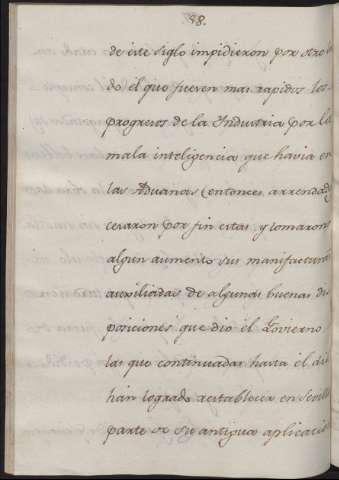 88.
de este siglo impidieron por otro la
do el que fuesen mas rapidos los
progresos de la Industria por la
mala inteligencia que havia en
las Aduanas (entonces arrendad
cesaron por fin estas, y tomaron
algun aumento sus manifacturas
auxiliadas de algunas buenas dis
posiciones que dio el Govierno
las que continuadas hasta el dia
hán logrado restablecer en Sevilla
parte de su antigua aplicacion